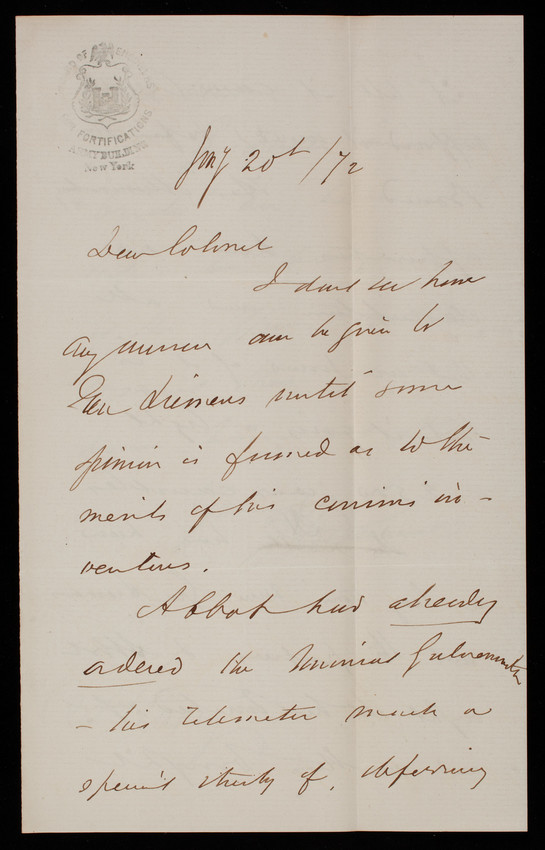 BOARD OF ENGINEERS
FOR FORTIFICATIONS
ARMY BUILDING
New York
Jany 20th / 72
Dear Colonel
I dont see how
any answer can be given to
Siemens until some
opinion is formed as to the
merits of his in-
ventions.
Abbot had already
ordered the Galvanometer
- his Telemeter made a
special study of, deferring